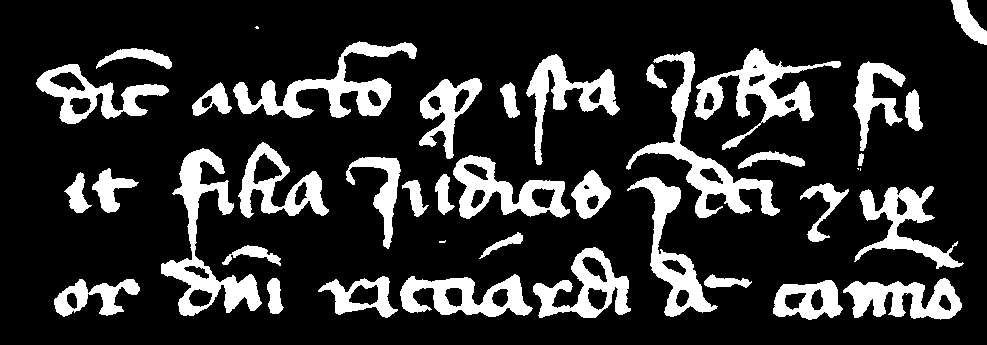 dic̄ auctō qꝫ ista Joħa fu
it filia Judicis p̄dc̄i ⁊ ux
or dn̄i ricciardi d̄ cam̄io